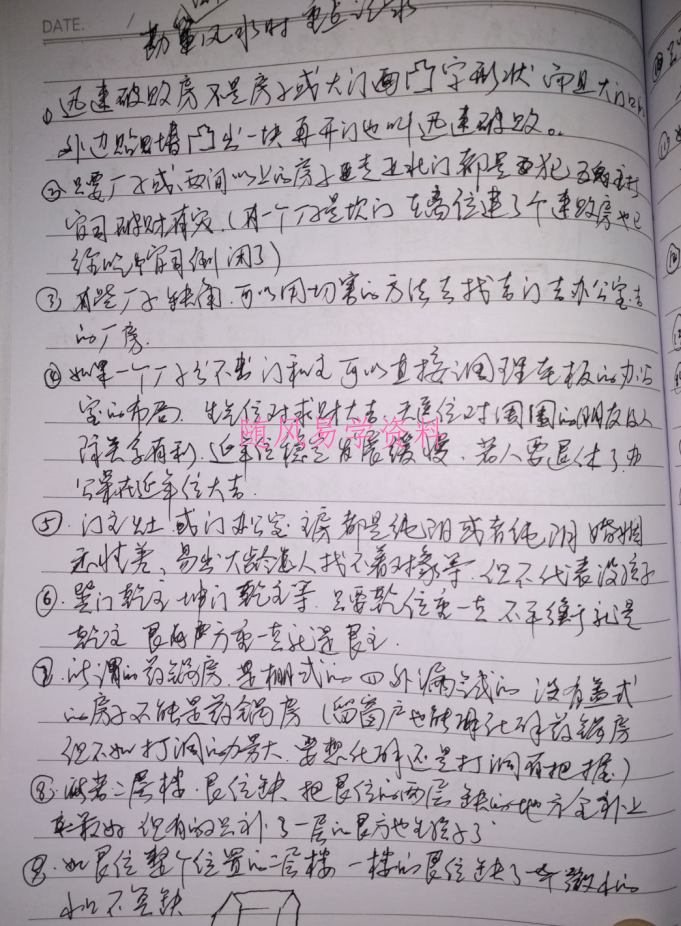 DATE. /
勘量风水时重点记录
① 迅速破败房不是房子或大门画凸字形状 而且大门口
外边贴着墙凸出一块再开门也叫迅速破败。
② 只要厂子或两间以上的房子正走正北门都是要犯
官司破财有灾.(有一个厂子是坎门 在离位建了个速败房也已
经吃官司倒闭了)
③ 有些厂子缺角.可以用切割的方法去找吉门吉办公室吉
的厂房.
④ 如果一个厂子分不出门和主 可以直接调理老板的办公
室的布局 生气位对求财大吉 天医位对周围的朋友及人
际关系有利.延年位稳定发展缓慢.若人要退休了办
公桌在延年位大吉.
随风易学资料
⑤. 门主灶.或门办公室.主房都是纯阴或者纯阳 婚姻
差、易出大龄人找不着对象等.但不代表没孩子
⑥. 巽门乾主 坤门乾主等.只要乾位重一点 不平衡就是
乾主 艮方重一点就是艮主.
⑦. 所谓的药锅房.是棚式的 四外漏气式的 没有盖式
的房子不能是药锅房 (留窗户也能化解药锅房
但不如打洞的力量大.要想化解还是打洞有把握)
⑧. 或者二层楼.艮位缺.把艮位的两层缺的地方全补上
是最好 但有的只补了一层的艮方也生孩子了
⑨. 如艮位整个位置的二层楼 一楼的艮位缺了一个微小的
不算缺